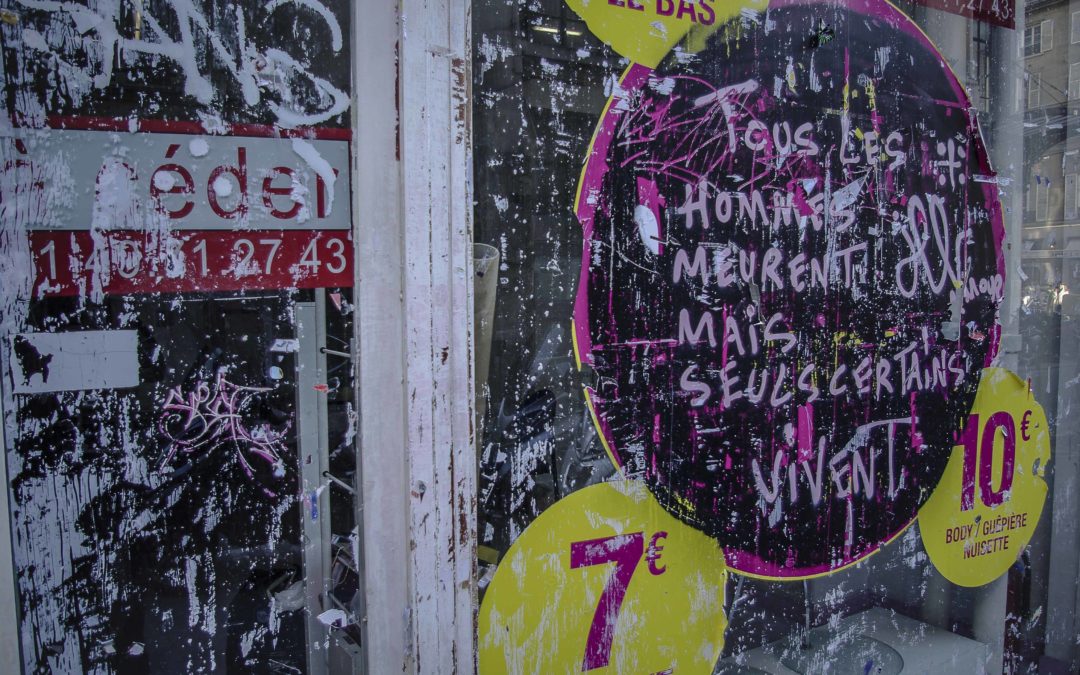 LE BAS
1,27.43
À céder
1.40.51.27.43
TOUS LES
HOMMES
MEURENT,
MAIS
SEULS CERTAINS
VIVENT
7€
10€
BODY / GUÊPIÈRE
NUISETTE